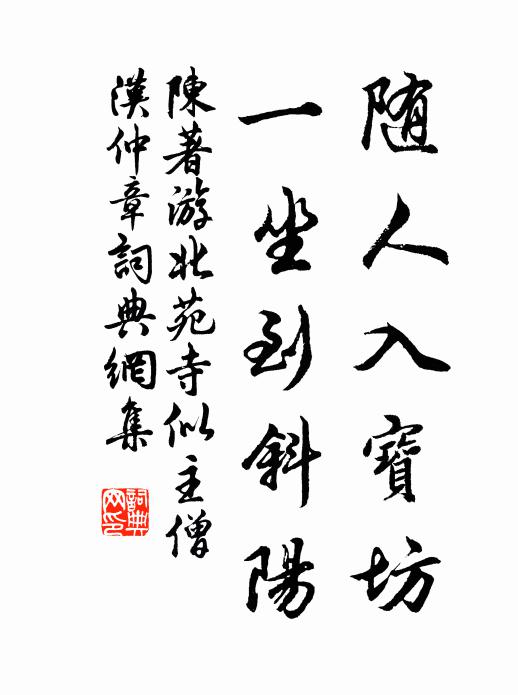 随人入寶坊
一坐到斜陽
陳著游北苑寺似主僧
漢仲章詞典網集
詞典網印